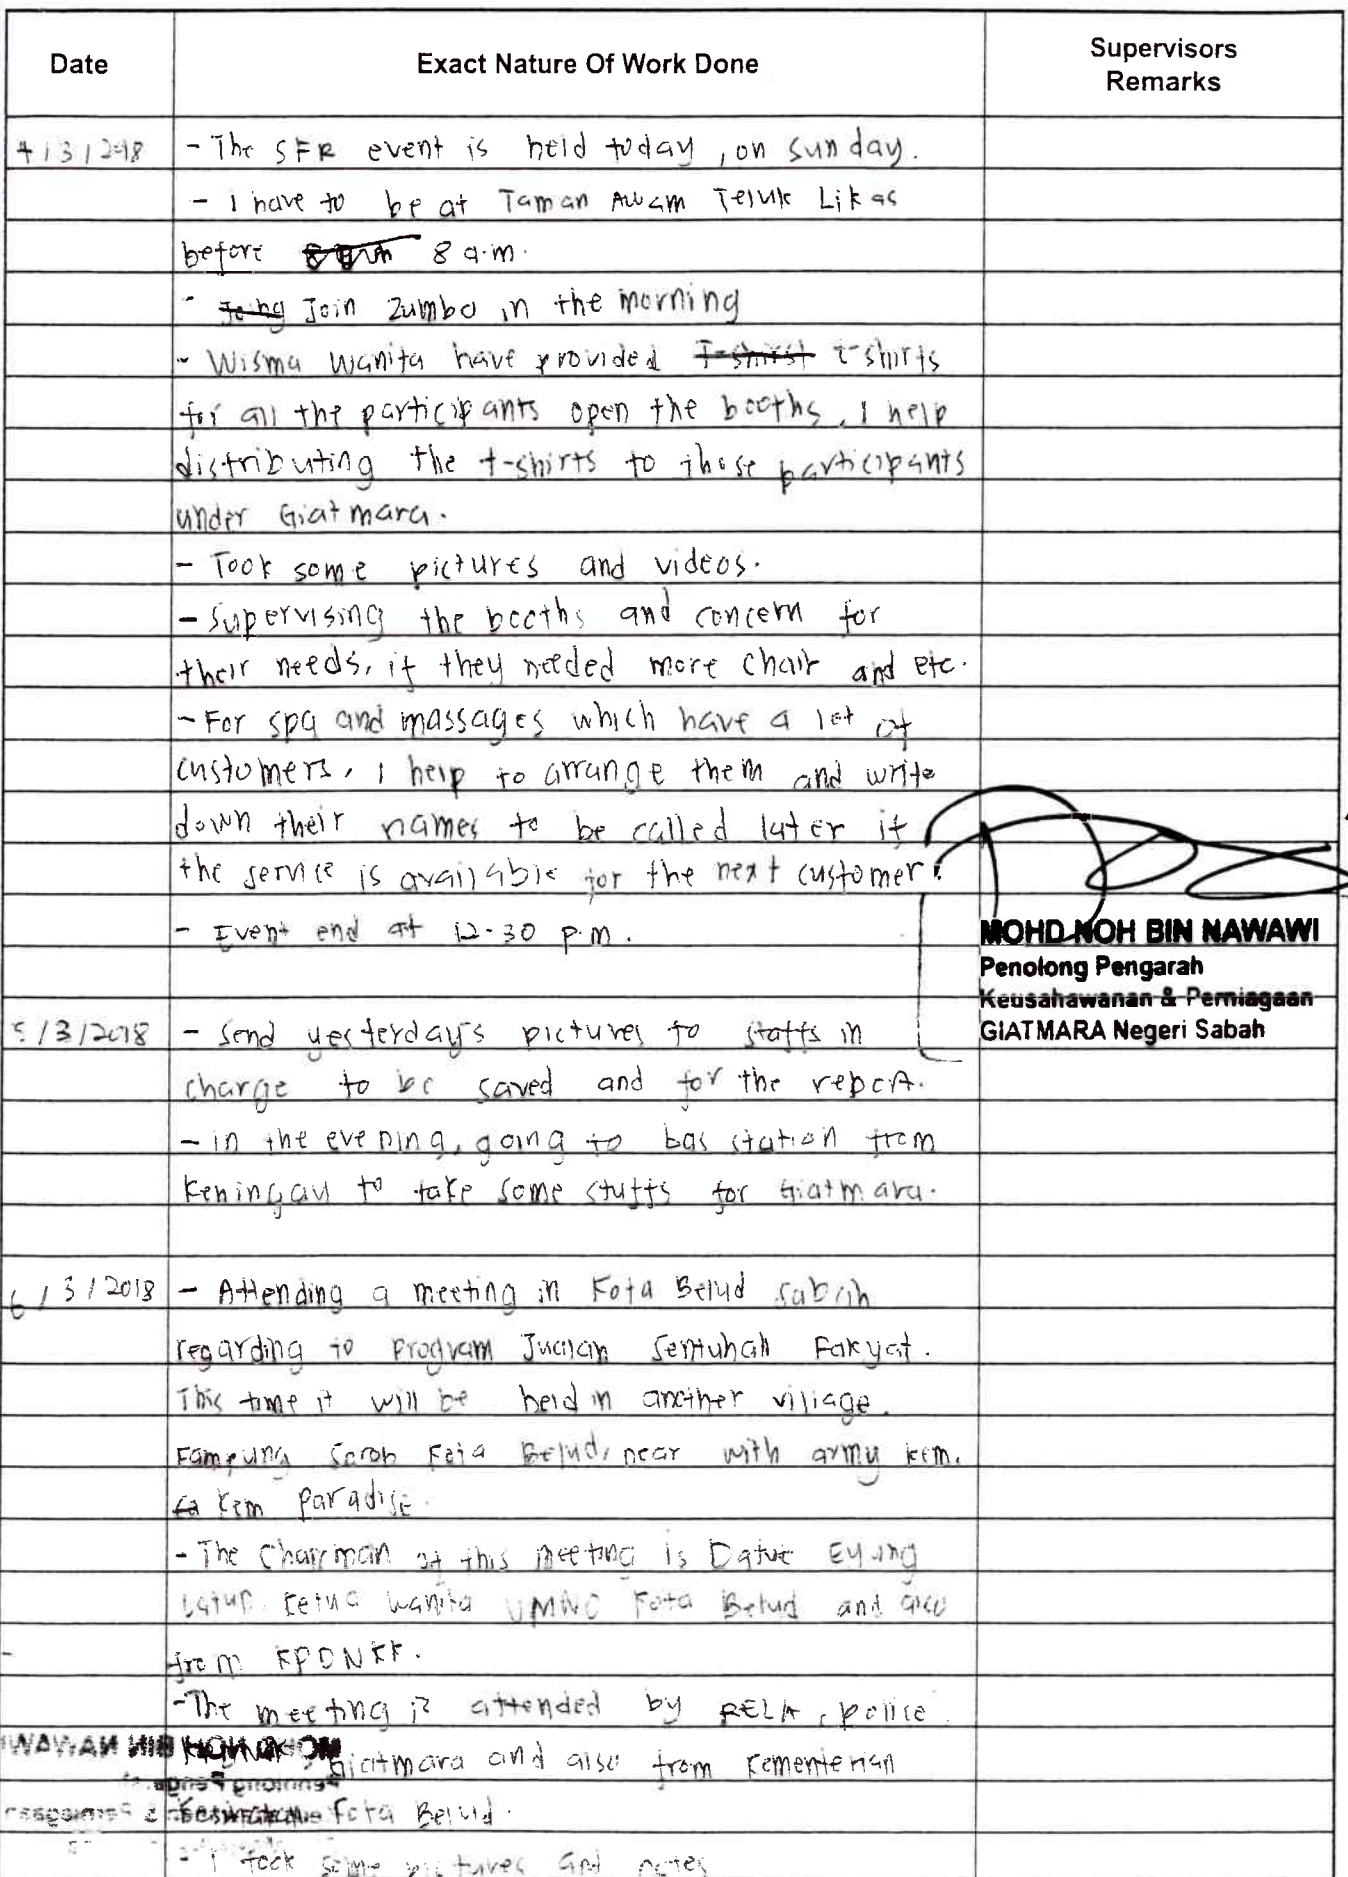 Date Exact Nature Of Work Done Supervisors Remarks
4/3/2018 - The SFR event is held today, on sunday.
- I have to be at Taman Awam Teluk Likas
before 8 a.m.
- Join Zumba in the morning
- Wisma Wanita have provided T-shirst t-shirts
for all the participants open the booths, I help
distributing the t-shirts to those participants
under Giatmara.
- Took some pictures and videos.
- Supervising the booths and concern for
their needs, if they needed more chair and etc.
- For spa and massages which have a lot of
customers, I help to arrange them and write
down their names to be called later if
the service is available for the next customer.
- Event end at 12.30 p.m.
MOHD NOH BIN NAWAWI
Penolong Pengarah
Keusahawanan & Perniagaan
GIATMARA Negeri Sabah
5/3/2018 - Send yesterday's pictures to staffs in
charge to be saved and for the report.
- in the evening, going to bas station from
Keningau to take some stuffs for Giatmara.
6/3/2018 - Attending a meeting in Kota Belud Sabah
regarding to Program Jualan Sentuhan Rakyat.
This time it will be held in another village.
Kampung Sorob Kota Belud, near with army kem.
Kem Paradise.
- The Chairman of this meeting is Datuk
Ketua Wanita UMNO Kota Belud and also
from KPDNKK.
- The meeting is attended by RELA, police
Giatmara and also from Kementerian
Kota Belud.
- I took some pictures and notes